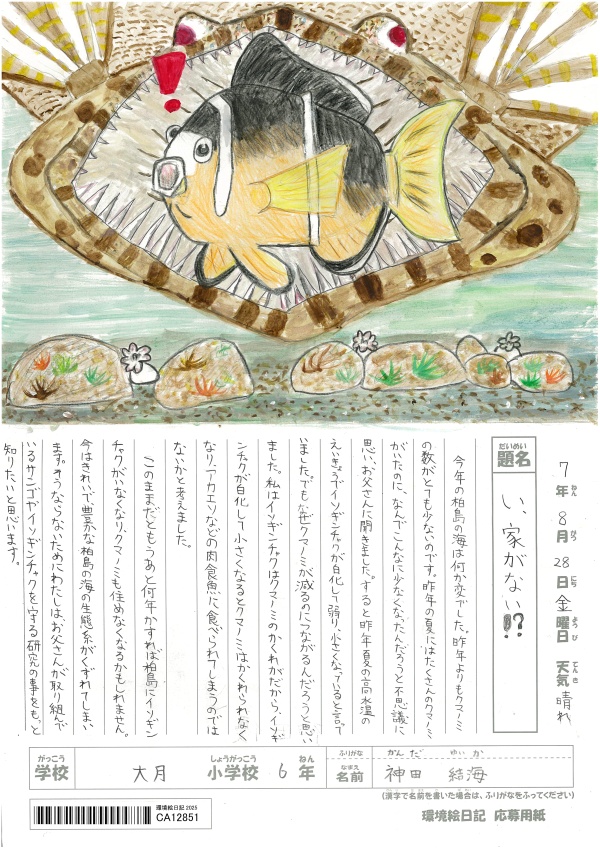 7年 8月 28日 金曜日 天気 晴れ
ねん がつ にち ようび てんき
だいめい
題名
い、家がない!?
今年の柏島の海は何か変でした。昨年よりもクマノミ
の数がとても少ないのです。昨年の夏にはたくさんのクマノミ
がいたのに、なんでこんなに少なくなったんだろうと不思議に
思い、お父さんに聞きました。すると昨年夏の高水温の
えいきょうでイソギンチャクが白化して弱り、小さくなっていると言って
いました。でもなぜクマノミが減るのにつながるんだろうと思い
ました。私はイソギンチャクはクマノミのかくれがだから、イソギ
ンチャクが白化して小さくなるとクマノミはかくれられなく
なり、アカエソなどの肉食魚に食べられてしまうのでは
ないかと考えました。
このままだともうあと何年かすれば柏島にイソギン
チャクがいなくなり、クマノミも住めなくなるかもしれません。
今はきれいで、豊かな柏島の海の生態系がくずれてしまい
ます。そうならないためにわたしは、お父さんが取り組んで
いるサンゴやイソギンチャクを守る研究の事をもっと
知りたいと思います。
がっこう しょうがっこう ねん
学校 大月 小学校 6年
ふりがな かんだ ゆいか
なまえ
名前 神田 結海
(漢字で名前を書いた場合は、ふりがなをふってください)
環境絵日記 2025
CA12851
環境絵日記 応募用紙